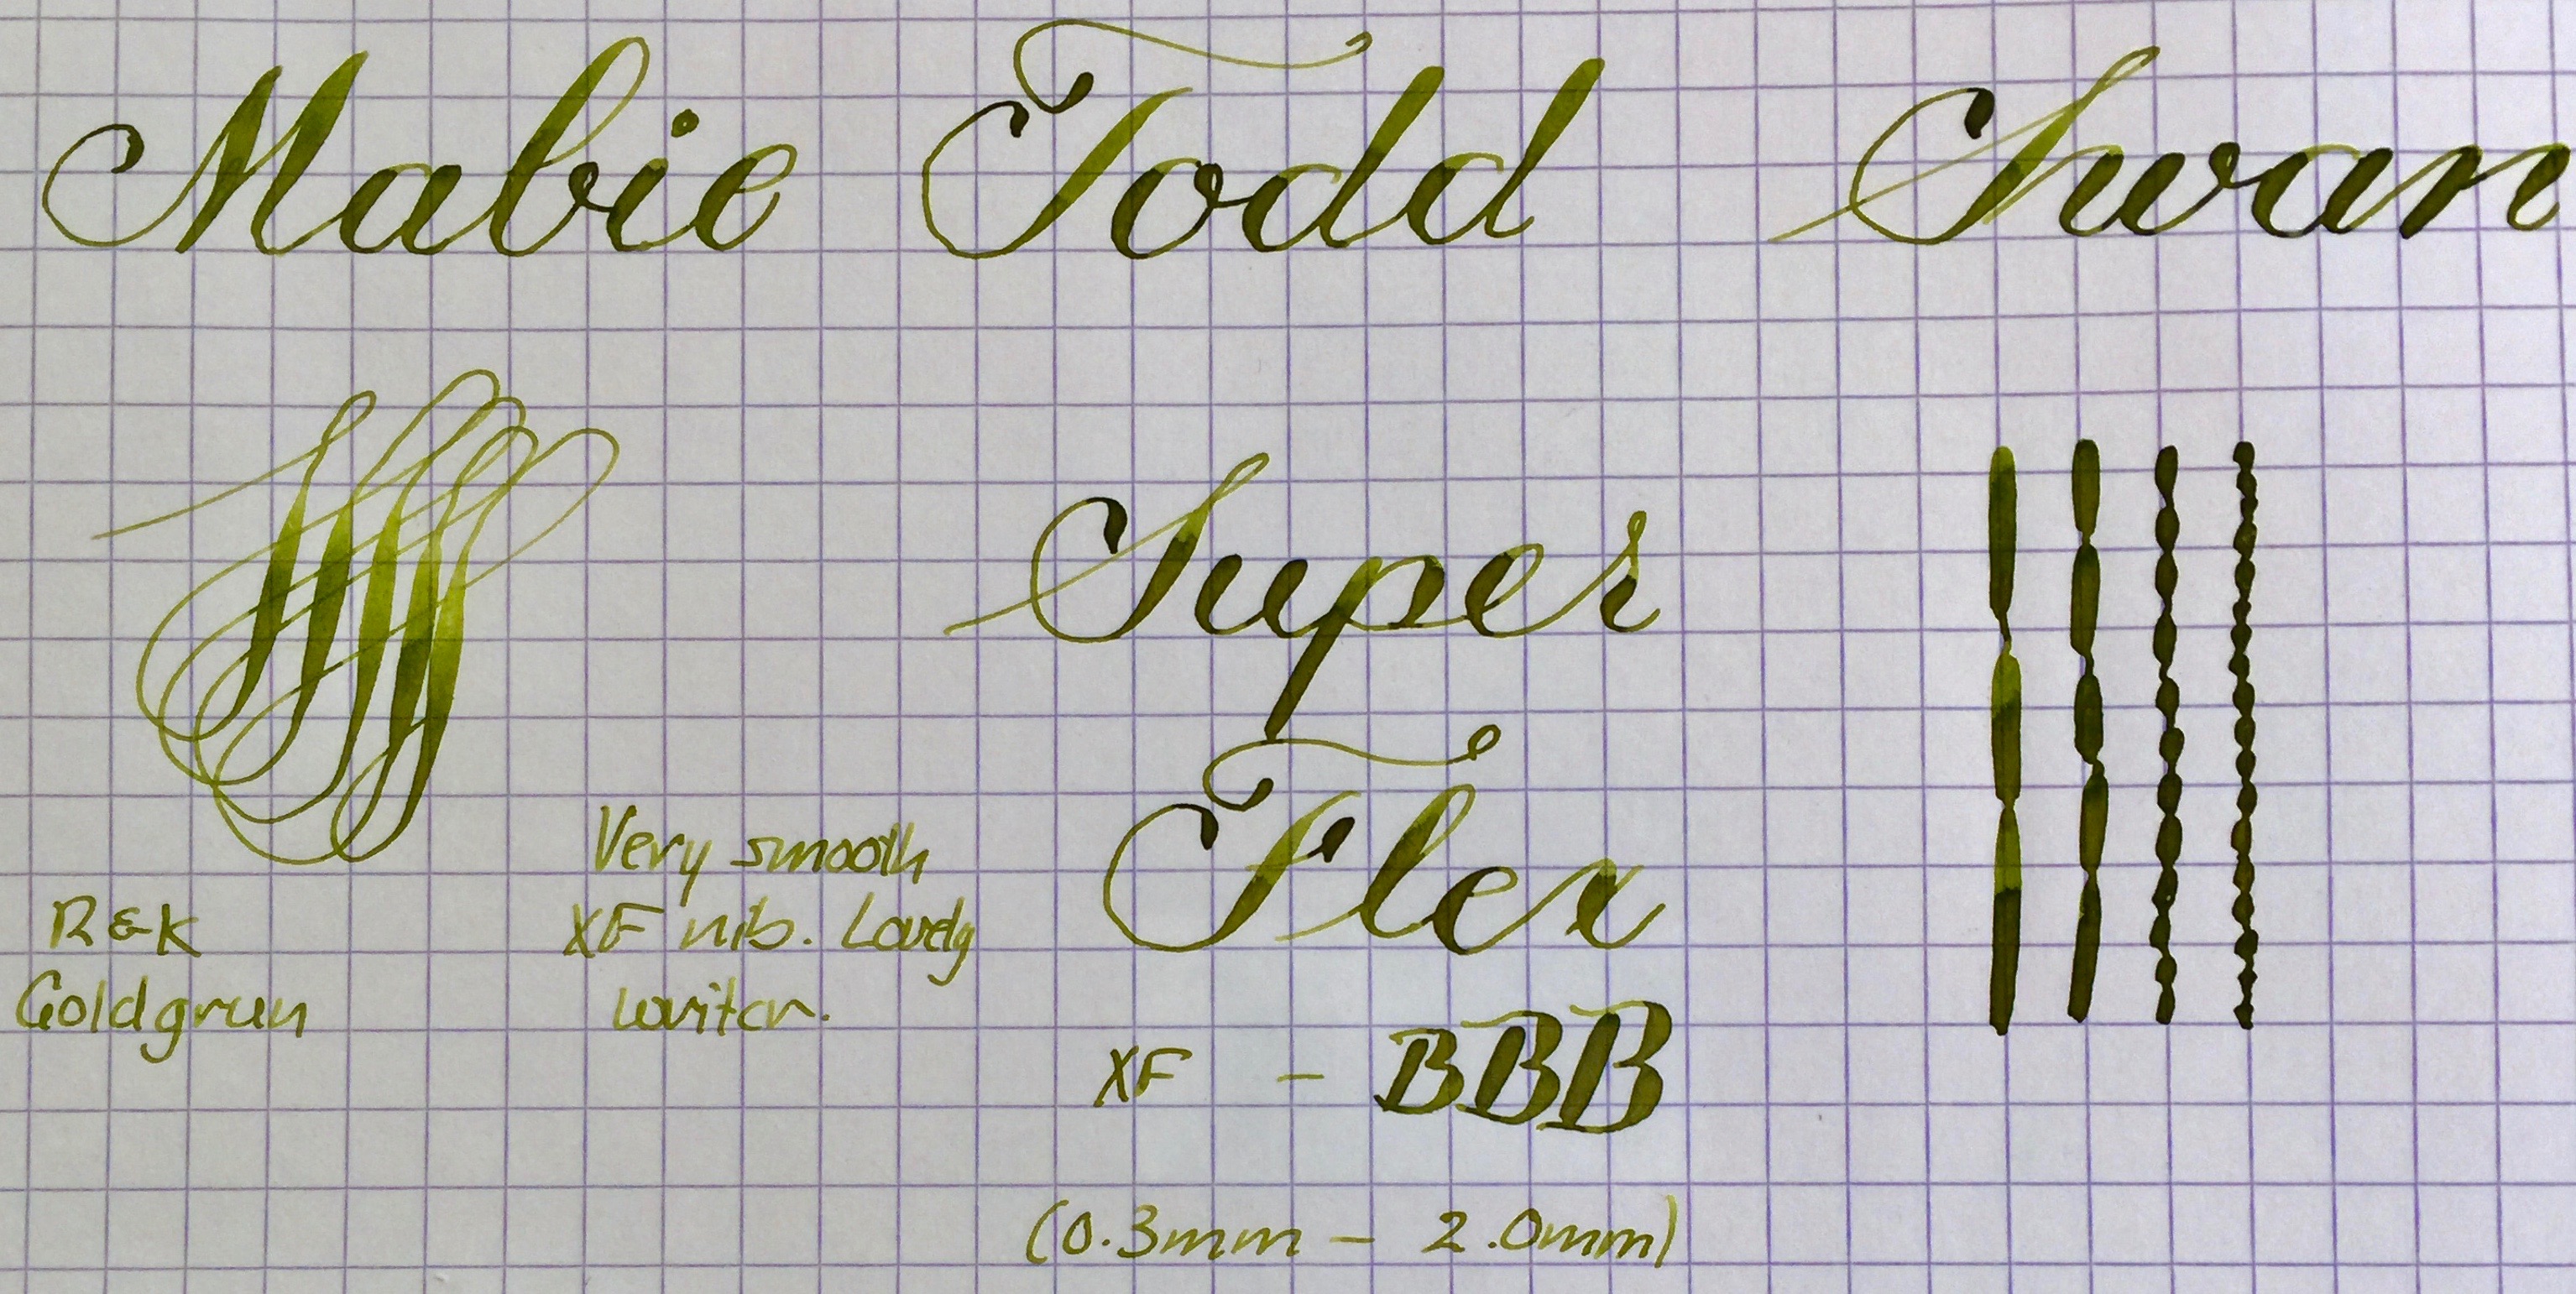 Mabie Todd Swan
Super
Flex
XF - BBB
(0.3mm - 2.0mm)
Very smooth
XF nib. Lovely
writer.
R&K
Goldgrun